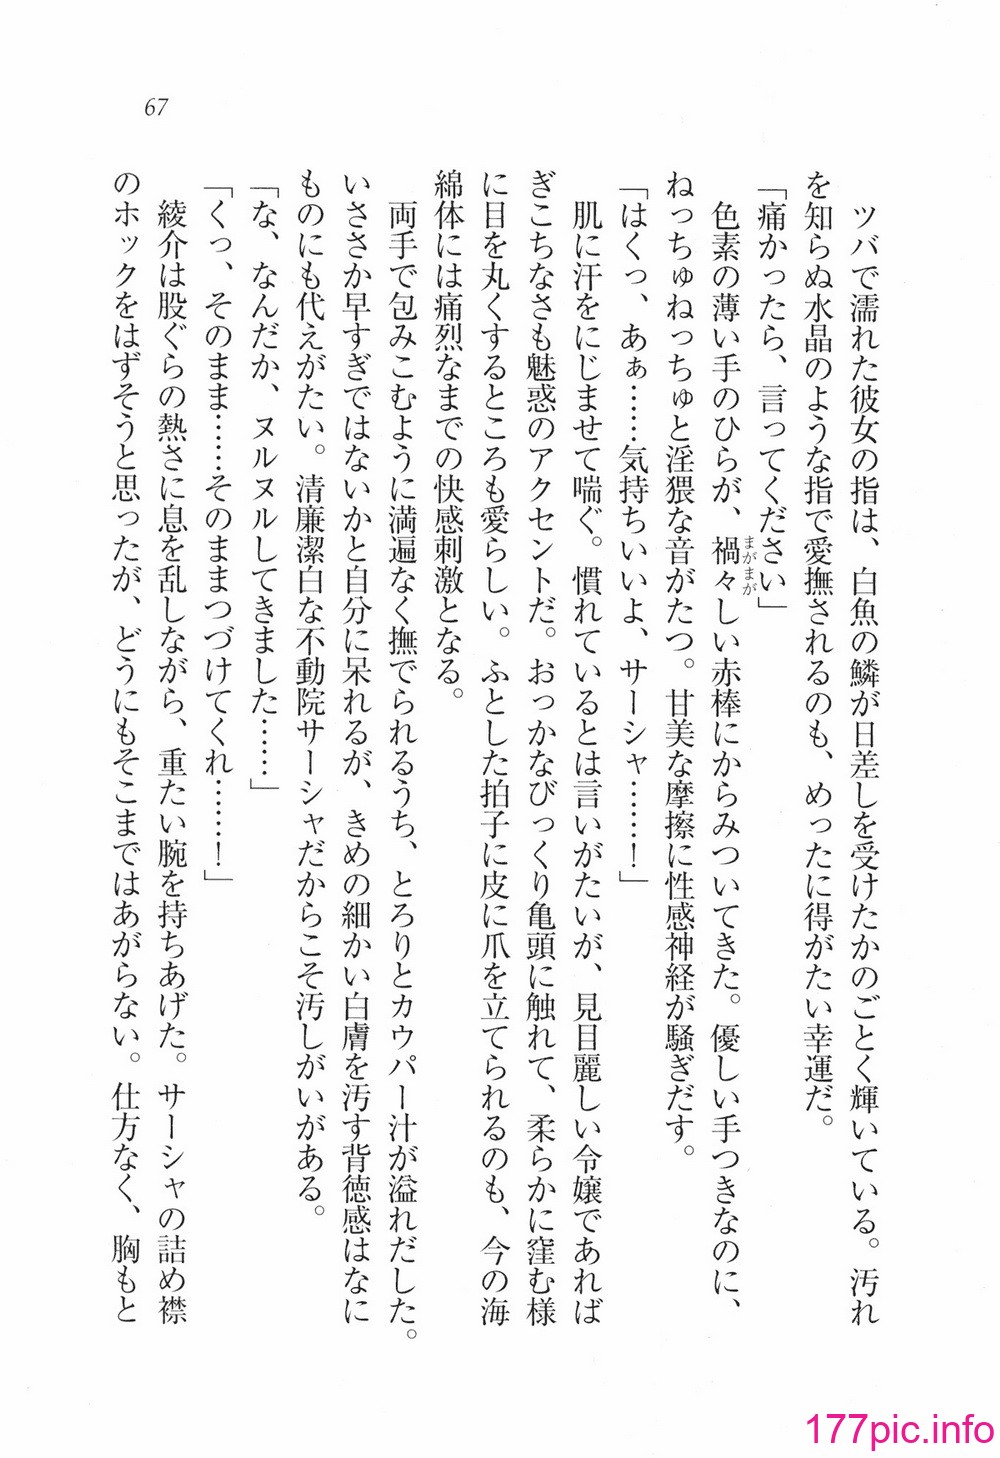 67
ツバで濡れた彼女の指は、白魚の鱗が日差しを受けたかのごとく輝いている。汚れ
を知らぬ水晶のような指で愛撫されるのも、めったに得がたい幸運だ。
「痛かったら、言ってください」
色素の薄い手のひらが、禍々しい赤棒にからみついてきた。優しい手つきなのに、
まがまが
ねっちゅねっちゅと淫猥な音がたつ。甘美な摩擦に性感神経が騒ぎだす。
「はくっ、あぁ……気持ちいいよ、サーシャ……！」
肌に汗をにじませて喘ぐ。慣れているとは言いがたいが、見目麗しい令嬢であれば
ぎこちなさも魅惑のアクセントだ。おっかなびっくり亀頭に触れて、柔らかに窪む様
に目を丸くするところも愛らしい。ふとした拍子に皮に爪を立てられるのも、今の海
綿体には痛烈なまでの快感刺激となる。
両手で包みこむように満遍なく撫でられるうち、とろりとカウパー汁が溢れだした。
いささか早すぎではないかと自分に呆れるが、きめの細かい白膚を汚す背徳感はなに
ものにも代えがたい。清廉潔白な不動院サーシャだからこそ汚しがいがある。
「な、なんだか、ヌルヌルしてきました……」
「くっ、そのまま……そのままつづけてくれ……！」
綾介は股ぐらの熱さに息を乱しながら、重たい腕を持ちあげた。サーシャの詰め襟
のホックをはずそうと思ったが、どうにもそこまではあがらない。仕方なく、胸もと
177pic.info